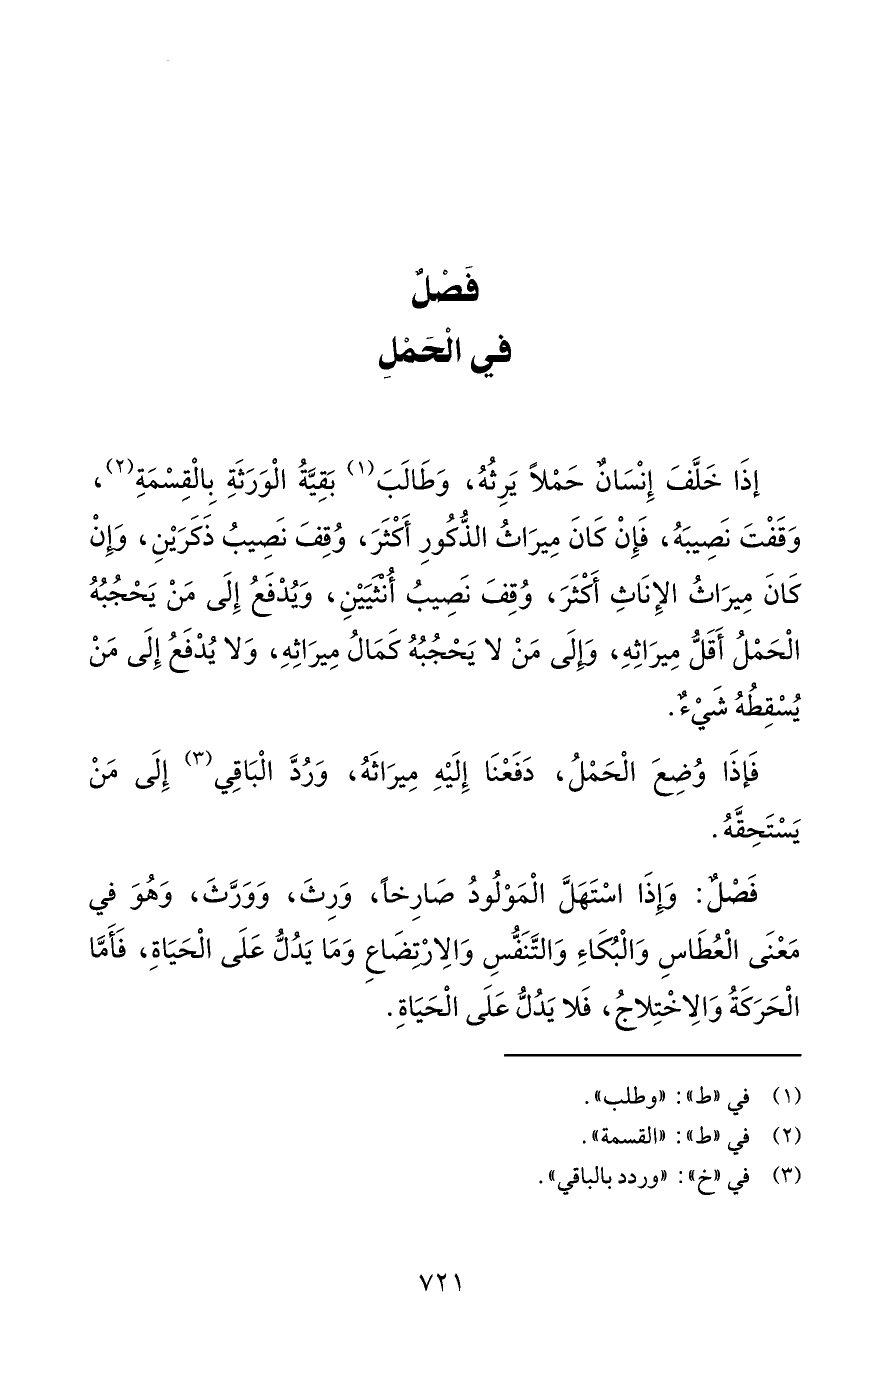 فَصْلٌ
في الْحَمْلِ
إِذَا خَلَّفَ إِنْسَانٌ حَمْلاً يَرِثُهُ، وَطَالَبَ(١) بَقِيَّةُ الْوَرَثَةِ بِالْقِسْمَةِ(٢)،
وَقَفْتَ نَصِيبَهُ، فَإِنْ كَانَ مِيرَاثُ الذُّكُورِ أَكْثَرَ، وُقِفَ نَصِيبُ ذَكَرَيْنِ، وَإِنْ
كَانَ مِيرَاثُ الإِنَاثِ أَكْثَرَ، وُقِفَ نَصِيبُ أُنْثَيَيْنِ، وَيُدْفَعُ إِلَى مَنْ يَحْجُبُهُ
الْحَمْلُ أَقَلُّ مِيرَاثِهِ، وَإِلَى مَنْ لا يَحْجُبُهُ كَمَالُ مِيرَاثِهِ، وَلا يُدْفَعُ إِلَى مَنْ
يُسْقِطُهُ شَيْءٌ.
فَإِذَا وُضِعَ الْحَمْلُ، دَفَعْنَا إِلَيْهِ مِيرَاثَهُ، وَرُدَّ الْبَاقِي(٣) إِلَى مَنْ
يَسْتَحِقَّهُ.
فَصْلٌ: وَإِذَا اسْتَهَلَّ الْمَوْلُودُ صَارِخاً، وَرِثَ، وَوَرَّثَ، وَهُوَ في
مَعْنَى الْعُطَاسِ وَالْبُكَاءِ وَالتَّنَفُّسِ وَالِارْتِضَاعِ وَمَا يَدُلُّ عَلَى الْحَيَاةِ، فَأَمَّا
الْحَرَكَةُ وَالِاخْتِلاجُ، فَلا يَدُلُّ عَلَى الْحَيَاةِ.
(١) في «ط»: «وطلب».
(٢) في «ط»: «القسمة».
(٣) في «خ»: «وردد بالباقي».
٧٢١